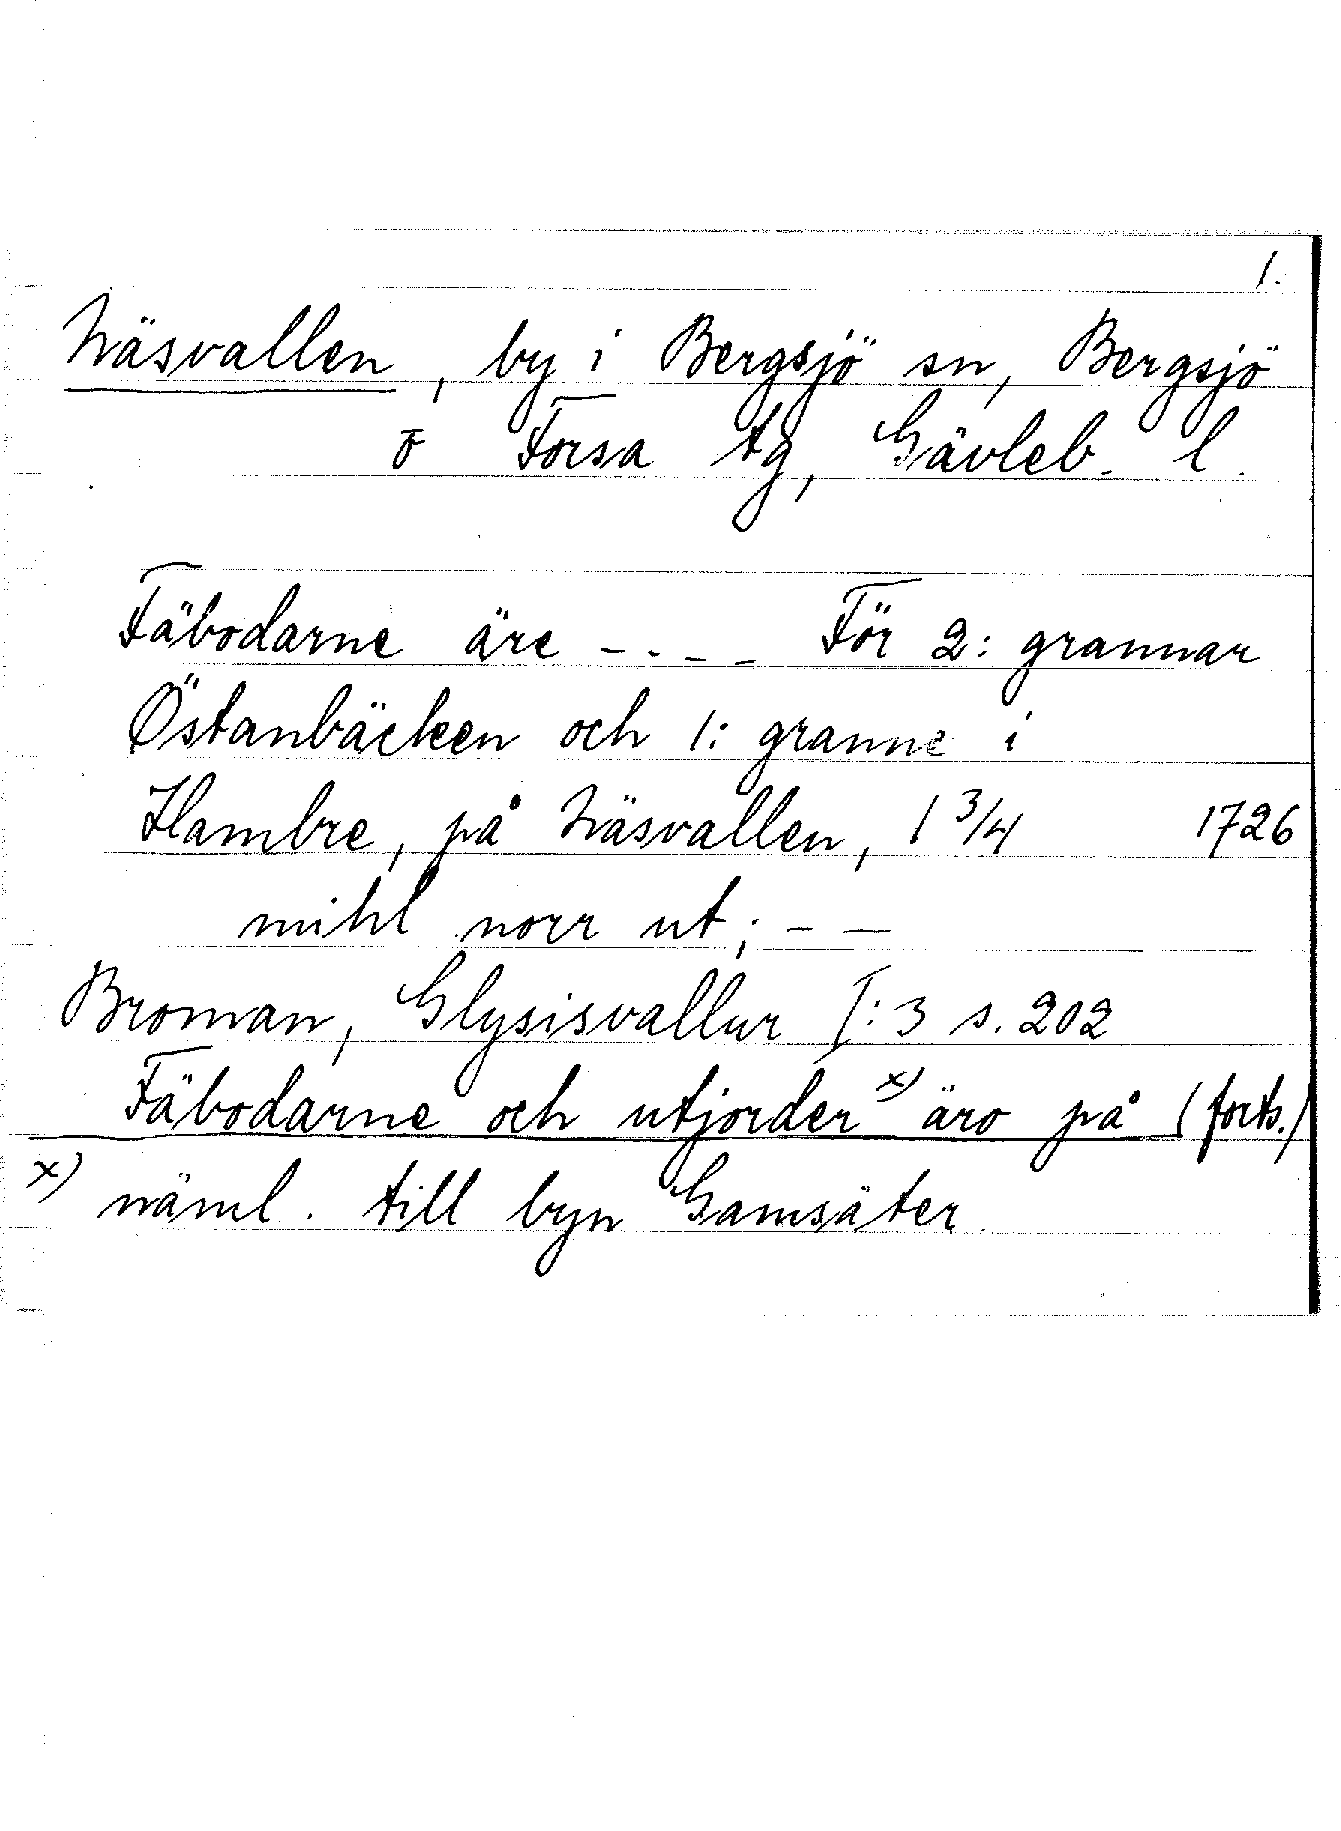 1.
Näsvallen, by i Bergsjö sn, Bergsjö
o Forsa tg, Gävleb. l.
Fäbodarne äre - . - - För 2: grannar
Östanbäcken och 1: granne i
Hambre, på Näsvallen, 1 3/4 1726
mihl norr ut; - -
Broman, Glysisvallur I: 3 s. 202
Fäbodarne och utjorder x) äro på (forts.)
x) näml. till byn Gamsäter.